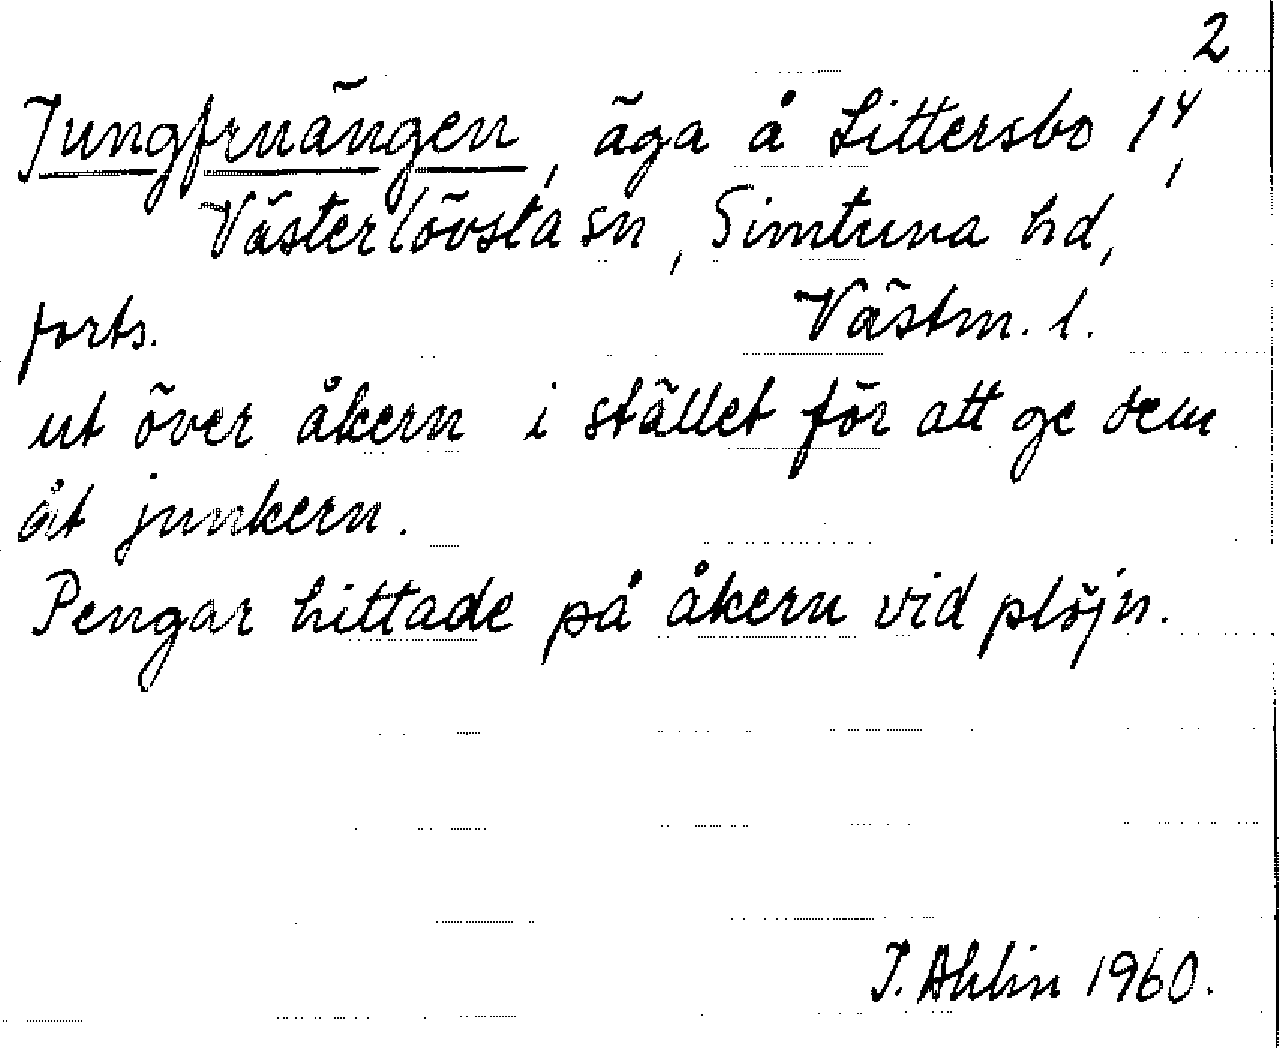 2
Jungfruängen, äga å Littersbo 1⁴,
Västerlövsta sn, Simtuna hd,
forts. Västm. l.
ut över åkern i stället för att ge dem
åt junkern.
Pengar hittade på åkern vid plöjn.
I. Ahlin 1960.